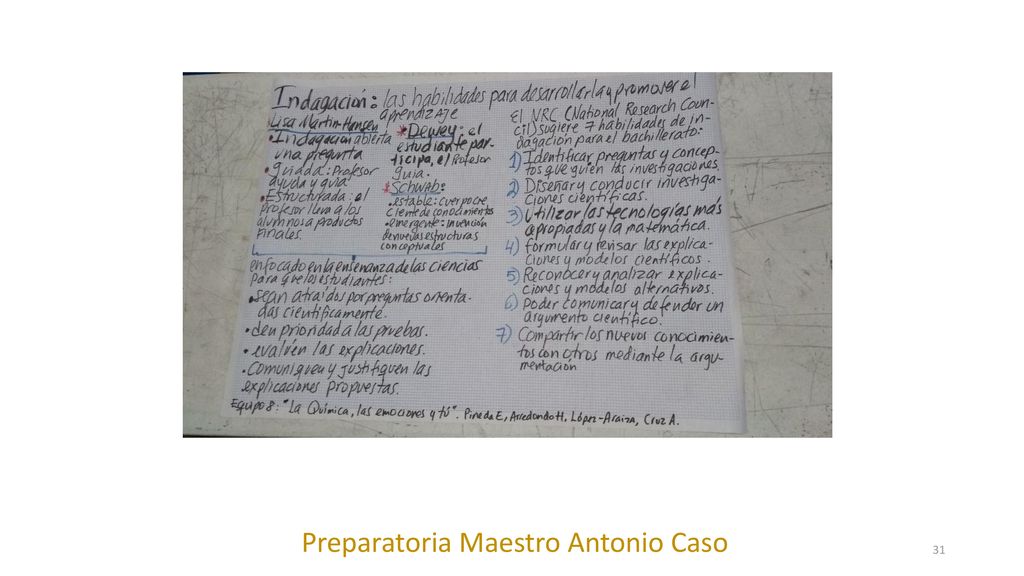 Indagación: las habilidades para desarrollarla y promover el
aprendizaje
Lisa Martin-Hansen
• Indagación abierta
una pregunta
• guiada: Profesor
ayuda y guia
• Estructurada: el
profesor lleva a los
alumnos a productos
finales.
* Dewey: el
estudiante par-
ticipa, el Profesor
guia.
* Schwab:
• estable: cuerpo cre
ciente de conocimientos
• emergente: invención
de nuevas estructuras
conceptuales
enfocado en la enseñanza de las ciencias
para que los estudiantes:
• sean atraídos por preguntas orienta-
das científicamente.
• den prioridad a las pruebas.
• evalúen las explicaciones.
• Comuniquen y justifiquen las
explicaciones propuestas.
El NRC (National Research Coun-
cil) sugiere 7 habilidades de in-
dagación para el bachillerato:
1) Identificar preguntas y concep-
tos que guien las investigaciones.
2) Diseñar y conducir investiga-
ciones científicas.
3) utilizar las tecnologías más
apropiadas y la matemática.
4) formular y revisar las explica-
ciones y modelos científicos.
5) Reconocer y analizar explica-
ciones y modelos alternativos.
6) Poder comunicar y defender un
argumento científico.
7) Compartir los nuevos conocimien-
tos con otros mediante la argu-
mentación
Equipo 8: "La Química, las emociones y tú". Pineda E, Arredondo H, López-Araiza, Cruz A.
Preparatoria Maestro Antonio Caso
31